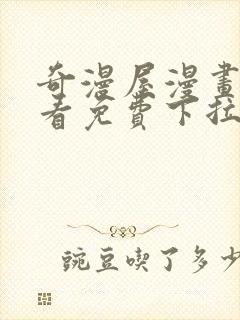 奇漫屋漫畫
看免費下拉
豌豆喫了多少